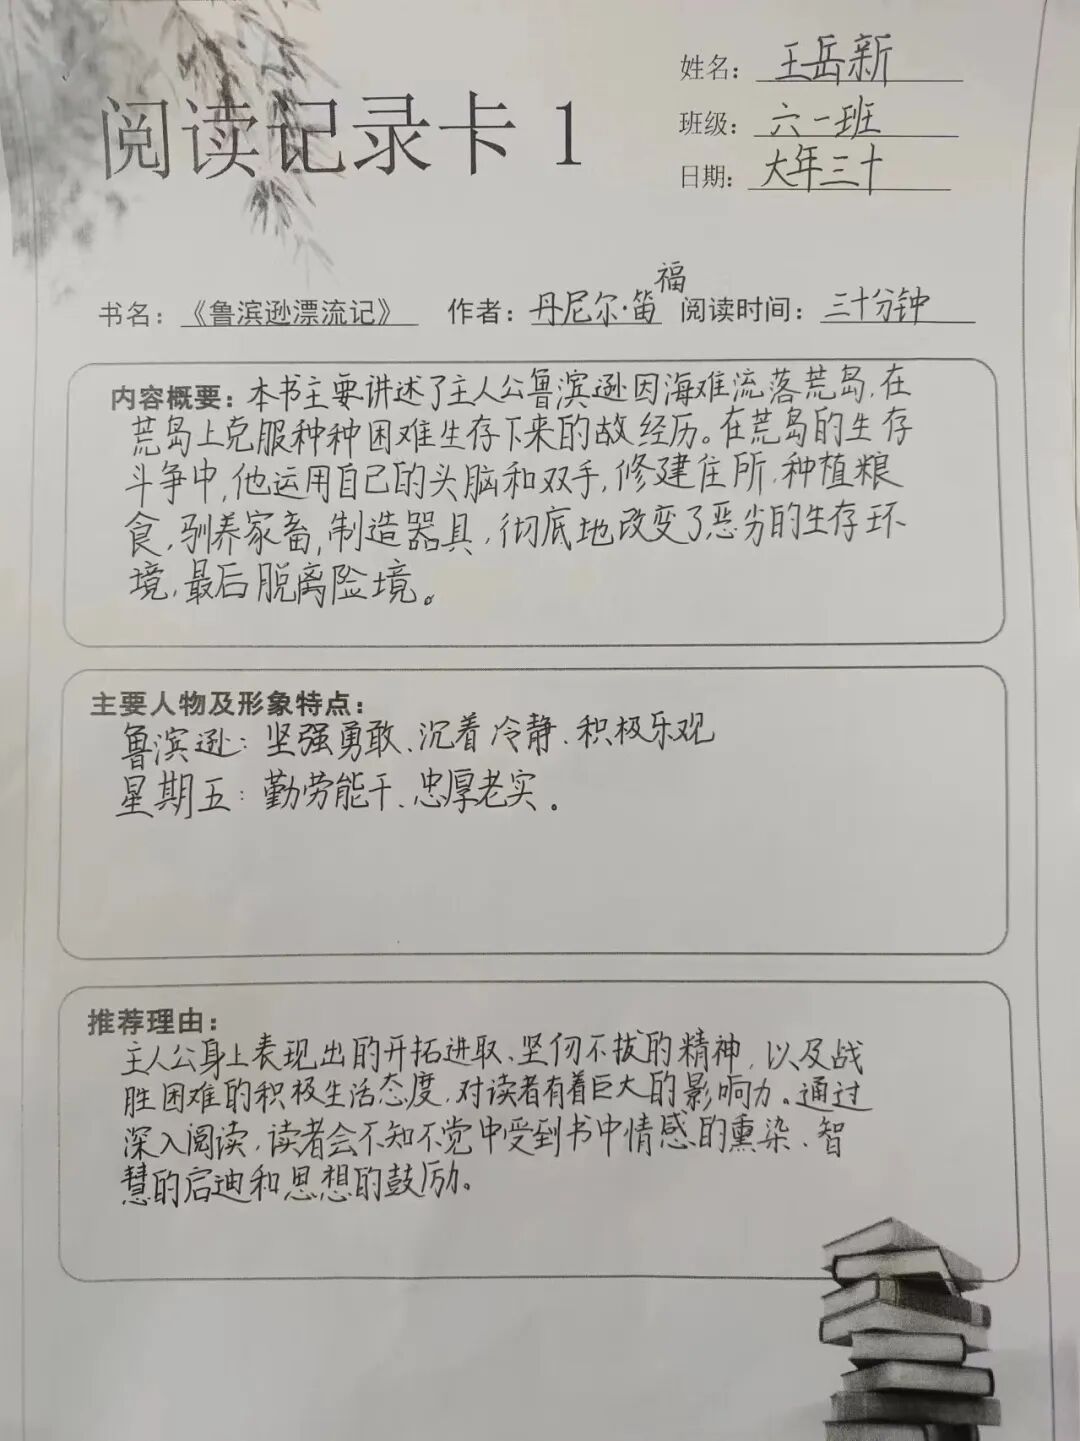 阅读记录卡 1
姓名：王岳新
班级：六一班
日期：大年三十
书名：《鲁滨逊漂流记》 作者：丹尼尔·笛福 阅读时间：三十分钟
内容概要：本书主要讲述了主人公鲁滨逊因海难流落荒岛，在
荒岛上克服种种困难生存下来的故经历。在荒岛的生存
斗争中，他运用自己的头脑和双手，修建住所，种植粮
食，驯养家畜，制造器具，彻底地改变了恶劣的生存环
境，最后脱离险境。
主要人物及形象特点：
鲁滨逊：坚强勇敢、沉着冷静、积极乐观
星期五：勤劳能干、忠厚老实。
推荐理由：
主人公身上表现出的开拓进取、坚仞不拔的精神，以及战
胜困难的积极生活态度，对读者有着巨大的影响力。通过
深入阅读，读者会不知不觉中受到书中情感的熏染、智
慧的启迪和思想的鼓励。